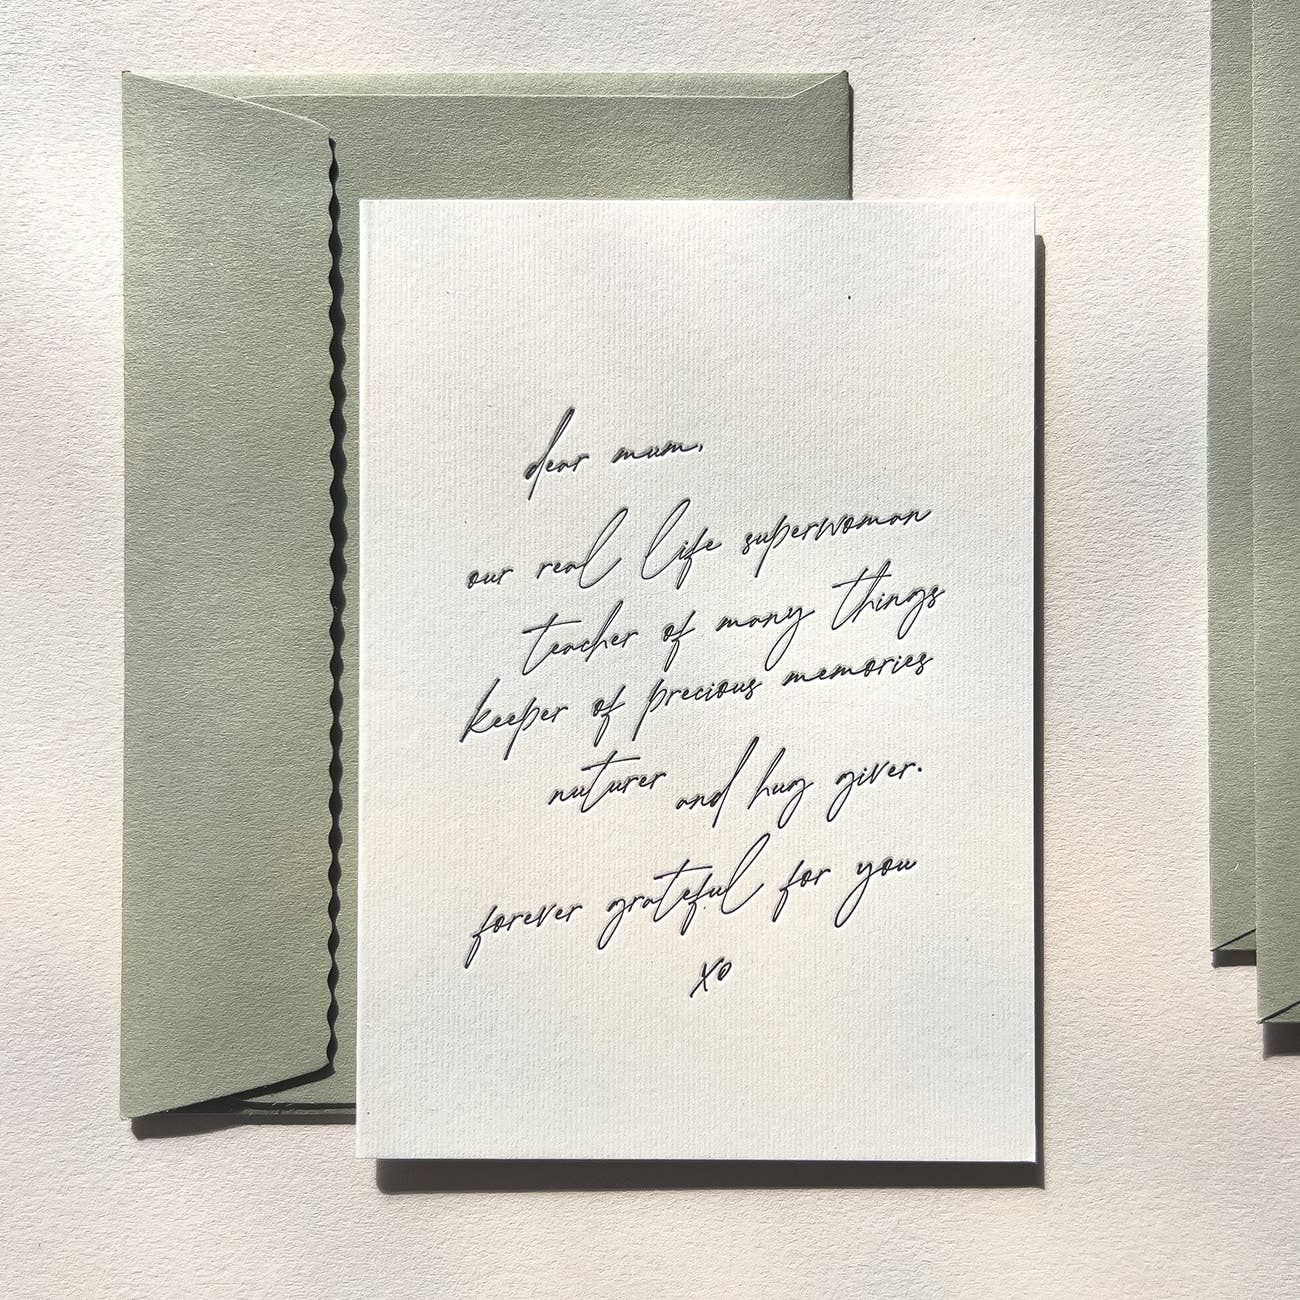 dear mum,
our real life superwoman
teacher of many things
keeper of precious memories
nuturer and hug giver.
forever grateful for you
xo